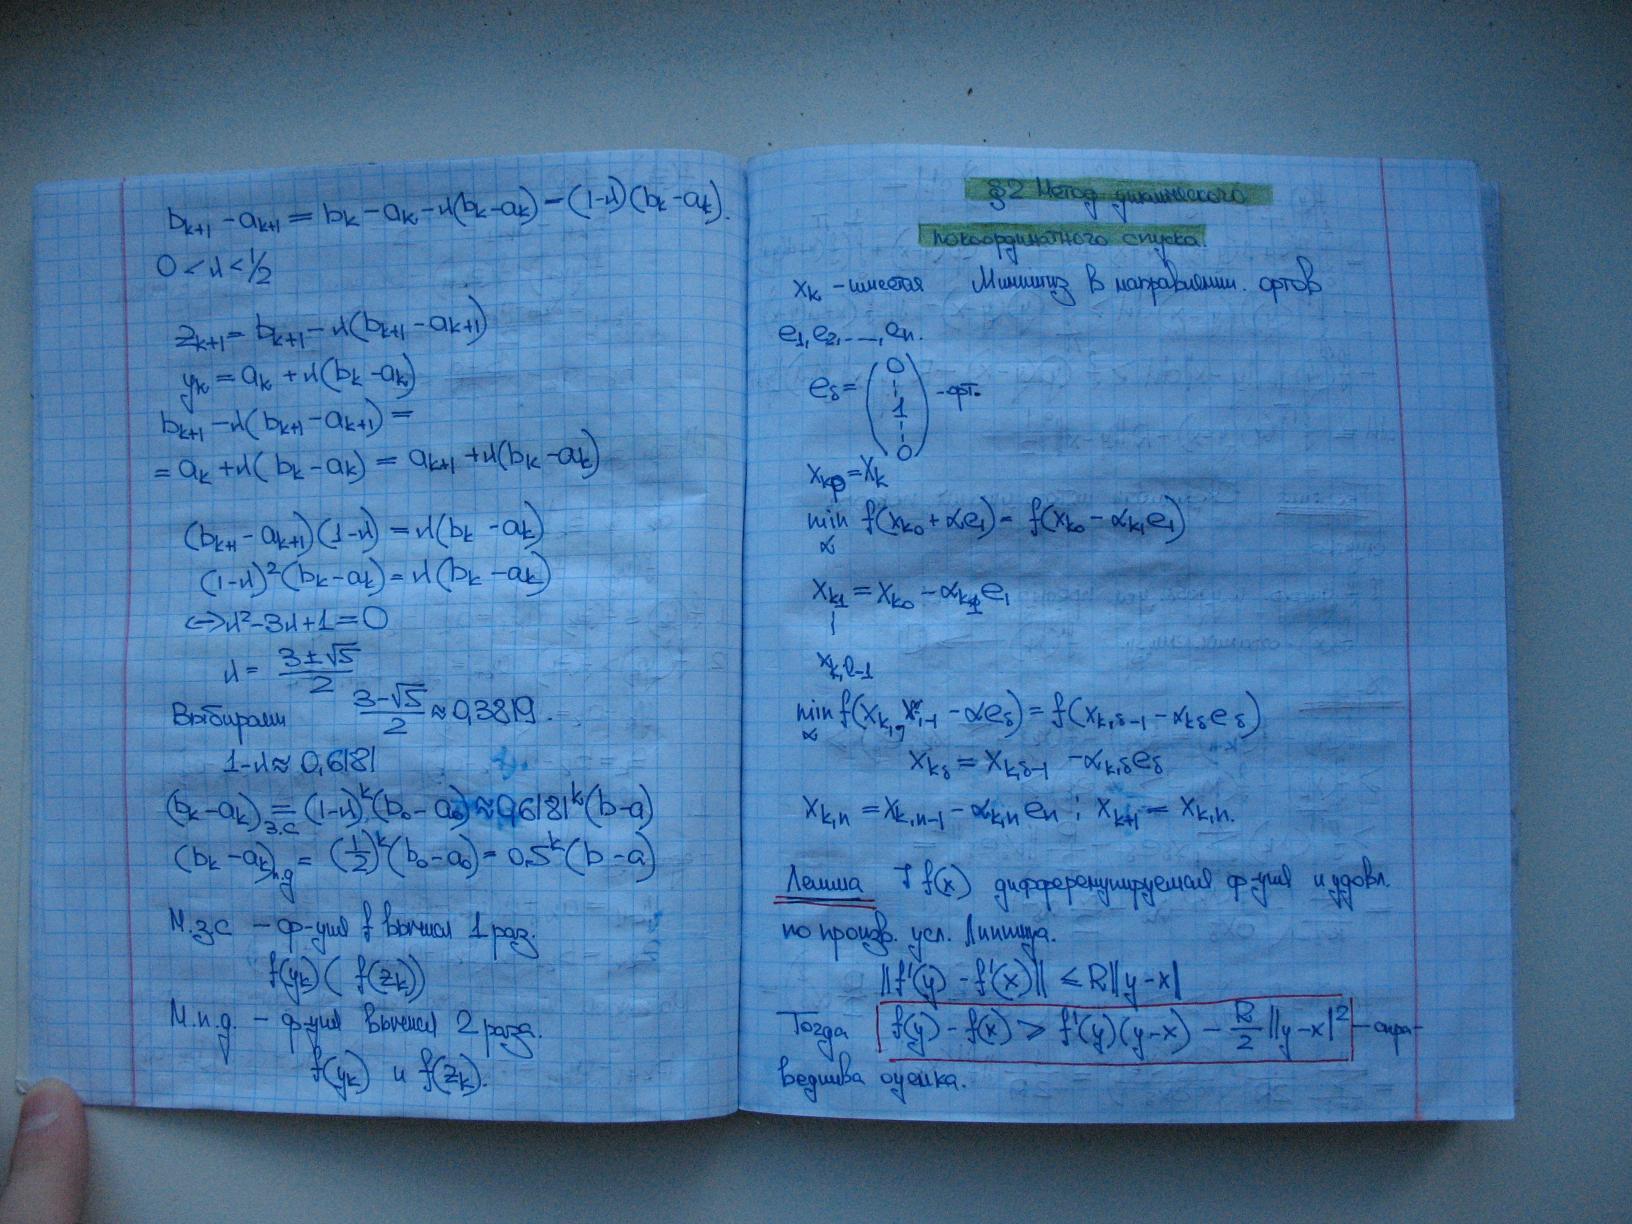 b_{k+1} - a_{k+1} = b_k - a_k - λ(b_k - a_k) = (1-λ)(b_k - a_k).
0 < λ < 1/2
z_{k+1} = b_{k+1} - λ(b_{k+1} - a_{k+1})
y_k = a_k + λ(b_k - a_k)
b_{k+1} - λ(b_{k+1} - a_{k+1}) =
= a_k + λ(b_k - a_k) = a_{k+1} + λ(b_k - a_k)
(b_{k+1} - a_{k+1})(1-λ) = λ(b_k - a_k)
(1-λ)²(b_k - a_k) = λ(b_k - a_k)
⇔ λ² - 3λ + 1 = 0
λ = (3 ± √5)/2
Выбираем (3 - √5)/2 ≈ 0,3819.
1-λ ≈ 0,6181
(b_k - a_k)_{з.с} = (1-λ)^k (b_0 - a_0) ≈ 0,6181^k (b-a)
(b_k - a_k)_{п.д} = (1/2)^k (b_0 - a_0) = 0,5^k (b-a)
М.з.с - ф-ция f вычисл 1 раз.
f(y_k) ( f(z_k))
М.п.д. - ф-ция вычисл 2 раза.
f(y_k) и f(z_k).
§2 Метод циклического
покоординатного спуска.
x_k - имеется Минимиз в направлении. ортов
e_1, e_2, ..., e_n.
e_s = (0 ¦ 1 ¦ 0) - орт.
x_{k0} = x_k
min_α f(x_{k0} + αe_1) = f(x_{k0} - α_{k1}e_1)
x_{k1} = x_{k0} - α_{k1}e_1
x_{k,s-1}
min_α f(x_{k,s-1} - αe_s) = f(x_{k,s-1} - α_{ks}e_s)
x_{ks} = x_{k,s-1} - α_{k,s}e_s
x_{k,n} = x_{k,n-1} - α_{k,n} e_n ; x_{k+1} = x_{k,n}.
Лемма ] f(x) дифференцируемая ф-ция и удовл.
по произв. усл. Липшица.
||f'(y) - f'(x)|| ≤ R||y-x||
Тогда f(y) - f(x) ≥ f'(y)(y-x) - R/2 ||y-x||² - спра-
ведлива оценка.